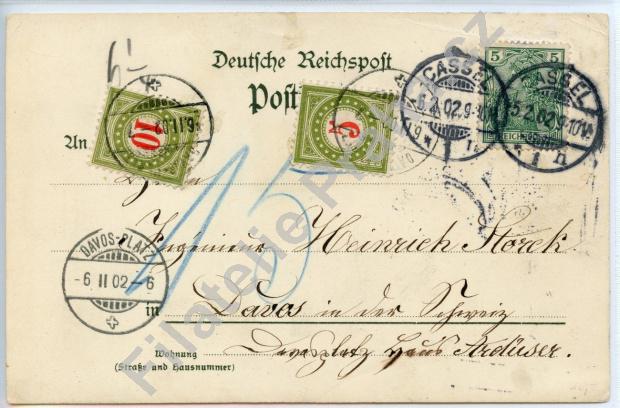 Deutsche Reichspost
Post
5 5
REICHSPOST
CASSEL
5.2.02.9-10V.
1
CASSEL
5.2.02.9-10V.
1
10
5
An
Herrn
Ingenieur Heinrich Storck
15
in Davos in der Schweiz
Davosplatz Haus Ardüser.
Wohnung
(Straße und Hausnummer)
DAVOS-PLATZ
-6 II 02-6
Filatelie Prag